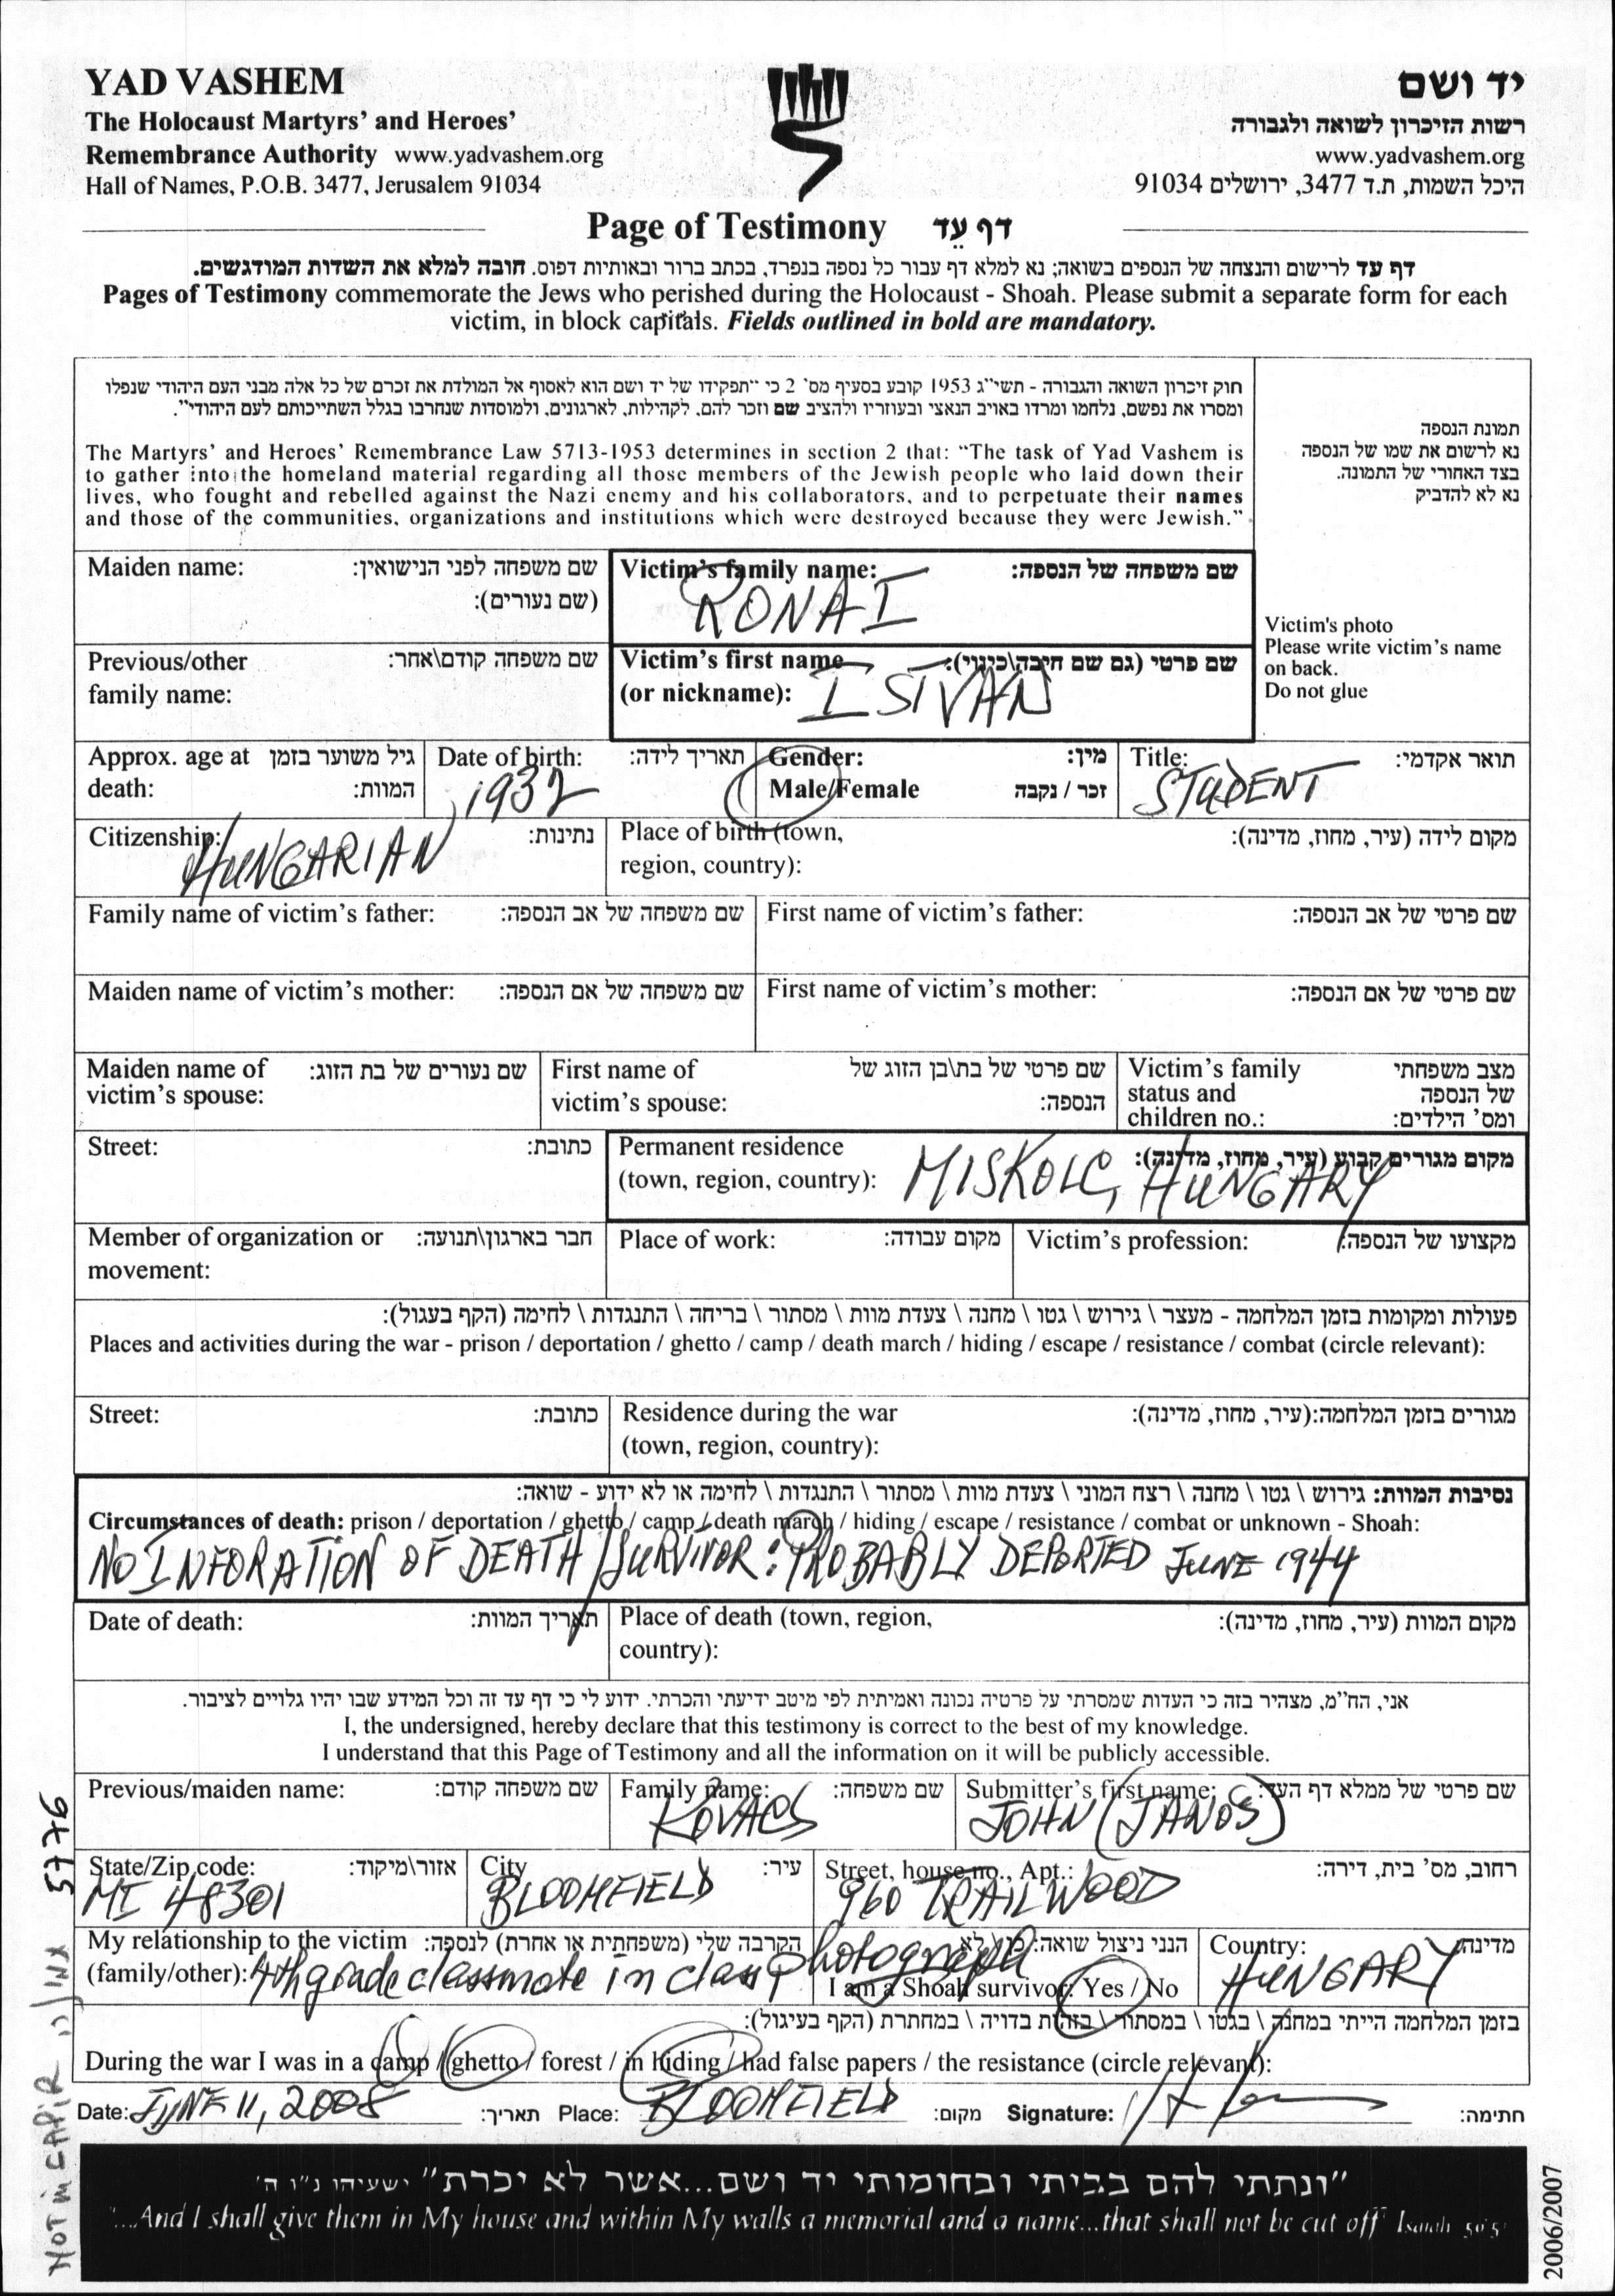 YAD VASHEM
The Holocaust Martyrs' and Heroes'
Remembrance Authority www.yadvashem.org
Hall of Names, P.O.B. 3477, Jerusalem 91034
יד ושם
רשות הזיכרון לשואה ולגבורה
www.yadvashem.org
היכל השמות, ת.ד 3477, ירושלים 91034
Page of Testimony דף עֵד
דף עד לרישום והנצחה של הנספים בשואה; נא למלא דף עבור כל נספה בנפרד, בכתב ברור ובאותיות דפוס. חובה למלא את השדות המודגשים.
Pages of Testimony commemorate the Jews who perished during the Holocaust - Shoah. Please submit a separate form for each
victim, in block capitals. Fields outlined in bold are mandatory.
חוק זיכרון השואה והגבורה - תשי"ג 1953 קובע בסעיף מס' 2 כי "תפקידו של יד ושם הוא לאסוף אל המולדת את זכרם של כל אלה מבני העם היהודי שנפלו
ומסרו את נפשם, נלחמו ומרדו באויב הנאצי ובעוזריו ולהציב שם וזכר להם, לקהילות, לארגונים, ולמוסדות שנחרבו בגלל השתייכותם לעם היהודי".
The Martyrs' and Heroes' Remembrance Law 5713-1953 determines in section 2 that: "The task of Yad Vashem is
to gather into the homeland material regarding all those members of the Jewish people who laid down their
lives, who fought and rebelled against the Nazi enemy and his collaborators, and to perpetuate their names
and those of the communities, organizations and institutions which were destroyed because they were Jewish."
תמונת הנספה
נא לרשום את שמו של הנספה
בצד האחורי של התמונה.
נא לא להדביק
Victim's photo
Please write victim's name
on back.
Do not glue
Maiden name: שם משפחה לפני הנישואין:
(שם נעורים):
Victim's family name: שם משפחה של הנספה:
RONAI
Previous/other שם משפחה קודם\אחר:
family name:
Victim's first name שם פרטי (גם שם חיבה\כינוי):
(or nickname): ISTVAN
Approx. age at גיל משוער בזמן
death: המוות:
Date of birth: תאריך לידה:
1932
Gender: מין:
Male/Female זכר / נקבה
Title: תואר אקדמי:
STUDENT
Citizenship: נתינות:
HUNGARIAN
Place of birth (town, מקום לידה (עיר, מחוז, מדינה):
region, country):
Family name of victim's father: שם משפחה של אב הנספה:
First name of victim's father: שם פרטי של אב הנספה:
Maiden name of victim's mother: שם משפחה של אם הנספה:
First name of victim's mother: שם פרטי של אם הנספה:
Maiden name of שם נעורים של בת הזוג:
victim's spouse:
First name of שם פרטי של בת\בן הזוג של
victim's spouse: הנספה:
Victim's family מצב משפחתי
status and של הנספה
children no.: ומס' הילדים:
Street: כתובת:
Permanent residence מקום מגורים קבוע (עיר, מחוז, מדינה):
(town, region, country): MISKOLC, HUNGARY
Member of organization or חבר בארגון\תנועה:
movement:
Place of work: מקום עבודה:
Victim's profession: מקצועו של הנספה:
פעולות ומקומות בזמן המלחמה - מעצר \ גירוש \ גטו \ מחנה \ צעדת מוות \ מסתור \ בריחה \ התנגדות \ לחימה (הקף בעגול):
Places and activities during the war - prison / deportation / ghetto / camp / death march / hiding / escape / resistance / combat (circle relevant):
Street: כתובת:
Residence during the war מגורים בזמן המלחמה:(עיר, מחוז, מדינה):
(town, region, country):
נסיבות המוות: גירוש \ גטו \ מחנה \ רצח המוני \ צעדת מוות \ מסתור \ התנגדות \ לחימה או לא ידוע - שואה:
Circumstances of death: prison / deportation / ghetto / camp / death march / hiding / escape / resistance / combat or unknown - Shoah:
NO INFORATION OF DEATH/SURVIVOR: PROBABLY DEPORTED JUNE 1944
Date of death: תאריך המוות:
Place of death (town, region, מקום המוות (עיר, מחוז, מדינה):
country):
אני, הח"מ, מצהיר בזה כי העדות שמסרתי על פרטיה נכונה ואמיתית לפי מיטב ידיעתי והכרתי. ידוע לי כי דף עד זה וכל המידע שבו יהיו גלויים לציבור.
I, the undersigned, hereby declare that this testimony is correct to the best of my knowledge.
I understand that this Page of Testimony and all the information on it will be publicly accessible.
Previous/maiden name: שם משפחה קודם:
Family name: שם משפחה:
KOVACS
Submitter's first name: שם פרטי של ממלא דף העד:
JOHN (JANOS)
State/Zip code: אזור\מיקוד:
MI 48301
City עיר:
BLOOMFIELD
Street, house no., Apt.: רחוב, מס' בית, דירה:
960 TRAILWOOD
My relationship to the victim הקרבה שלי (משפחתית או אחרת) לנספה:
(family/other): 4th grade classmate in class photograph
הנני ניצול שואה: כן / לא
I am a Shoah survivor: Yes / No
Country: מדינה:
HUNGARY
בזמן המלחמה הייתי במחנה \ בגטו \ במסתור \ בזהות בדויה \ במחתרת (הקף בעיגול):
During the war I was in a camp / ghetto / forest / in hiding / had false papers / the resistance (circle relevant):
Date: JUNE 11, 2008 תאריך: Place: BLOOMFIELD מקום: Signature: חתימה:
"ונתתי להם בביתי ובחומותי יד ושם...אשר לא יכרת" ישעיהו נ"ו ה'
"...And I shall give them in My house and within My walls a memorial and a name...that shall not be cut off" Isaiah 56:5
NOT in CAPIR
5776
2006/2007